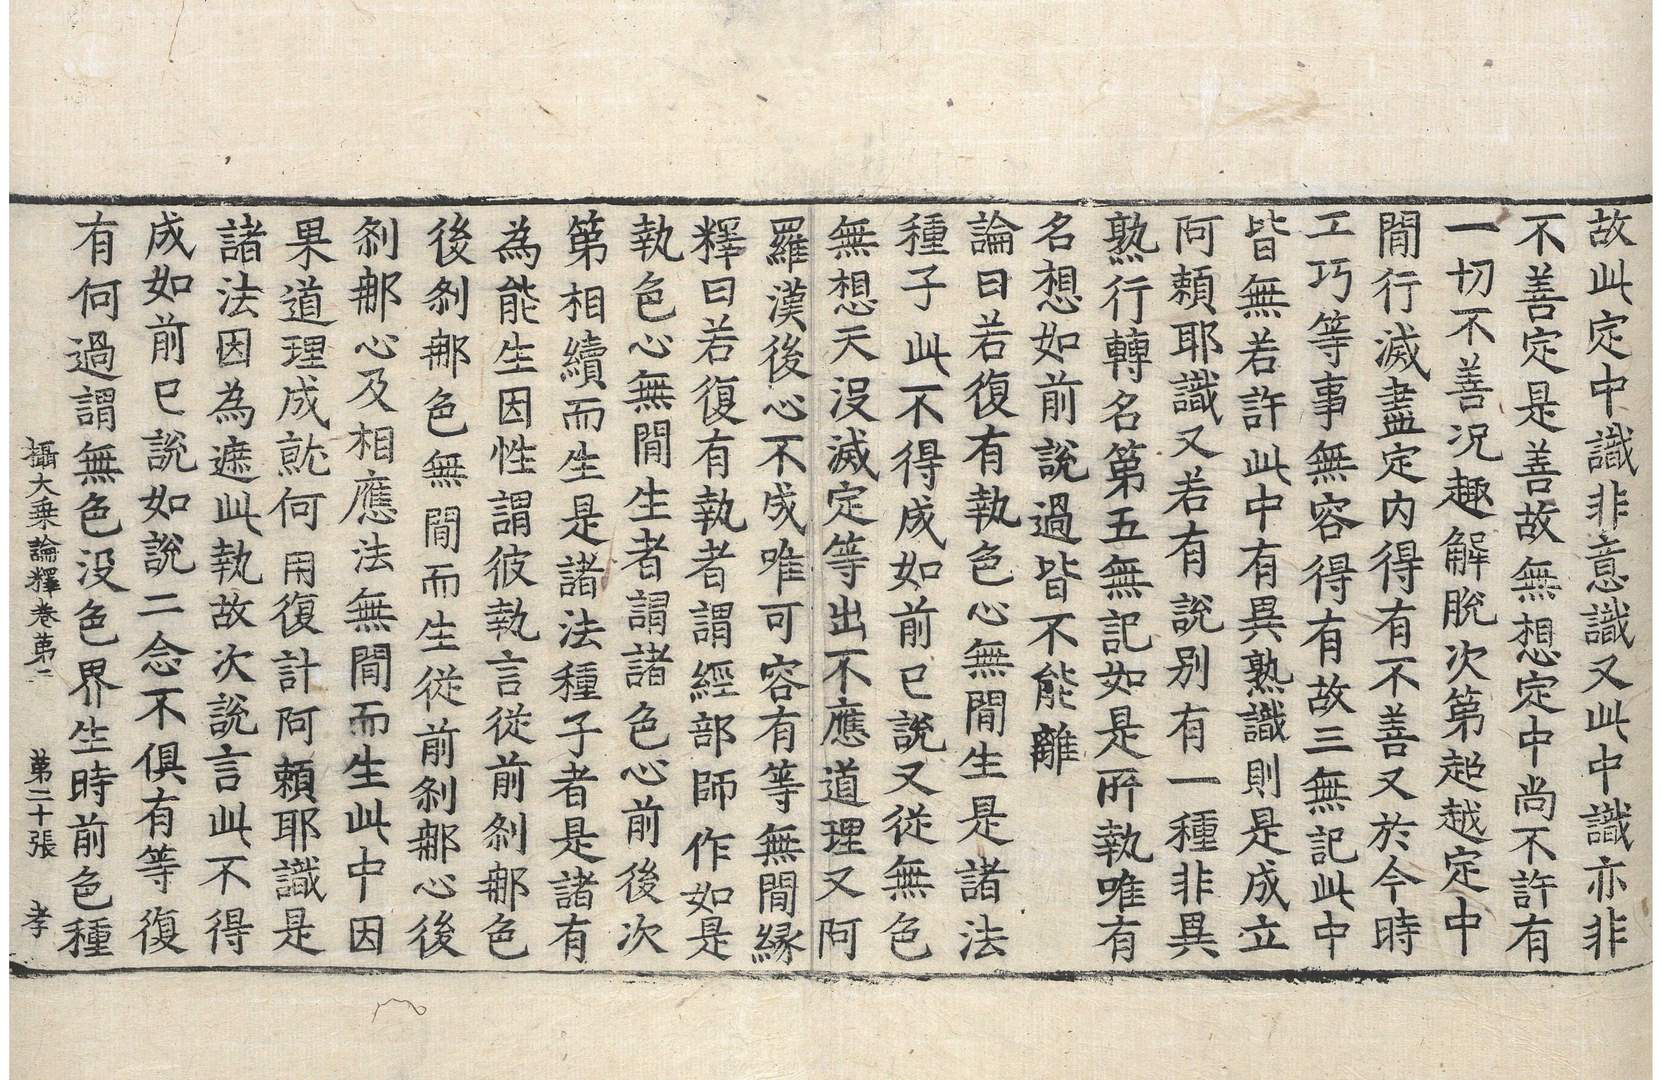 故此定中識非意識又此中識亦非
不善定是善故無想定中尚不許有
一切不善况趣解脫次第超越定中
閒行滅盡定內得有不善又於今時
工巧等事無容得有故三無記此中
皆無若許此中有異熟識則是成立
阿賴耶識又若有說别有一種非異
熟行轉名第五無記如是所執唯有
名想如前說過皆不能離
論曰若復有執色心無閒生是諸法
種子此不得成如前已說又從無色
無想天沒滅定等出不應道理又阿
羅漢後心不成唯可容有等無閒緣
釋曰若復有執者謂經部師作如是
執色心無閒生者謂諸色心前後次
第相續而生是諸法種子者是諸有
為能生因性謂彼執言從前剎那色
後剎那色無閒而生從前剎那心後
剎那心及相應法無閒而生此中因
果道理成就何用復計阿賴耶識是
諸法因為遮此執故次說言此不得
成如前已說如說二念不俱有等復
有何過謂無色没色界生時前色種
攝大乗論釋卷第二 第二十張 孝